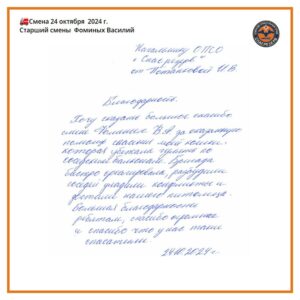 Смена 24 октября 2024 г.
Старший смены Фоминых Василий
Начальнику ОПСО
"Спасрезерв"
от Потапковой И.В
Благодарность.
Хочу сказать большое спасибо
смене Фоминых В.Я за оказанную
помощь спасения моей кошки,
которая убежала гулять по
соседским балконам. Бригада
быстро среагировала, разбудили
соседей уладили конфликт и
достали нашего питомца.
Большая благодарность
ребятам, спасибо огромное
и спасибо что у нас такие
спасатели.
24.10.2024 г.